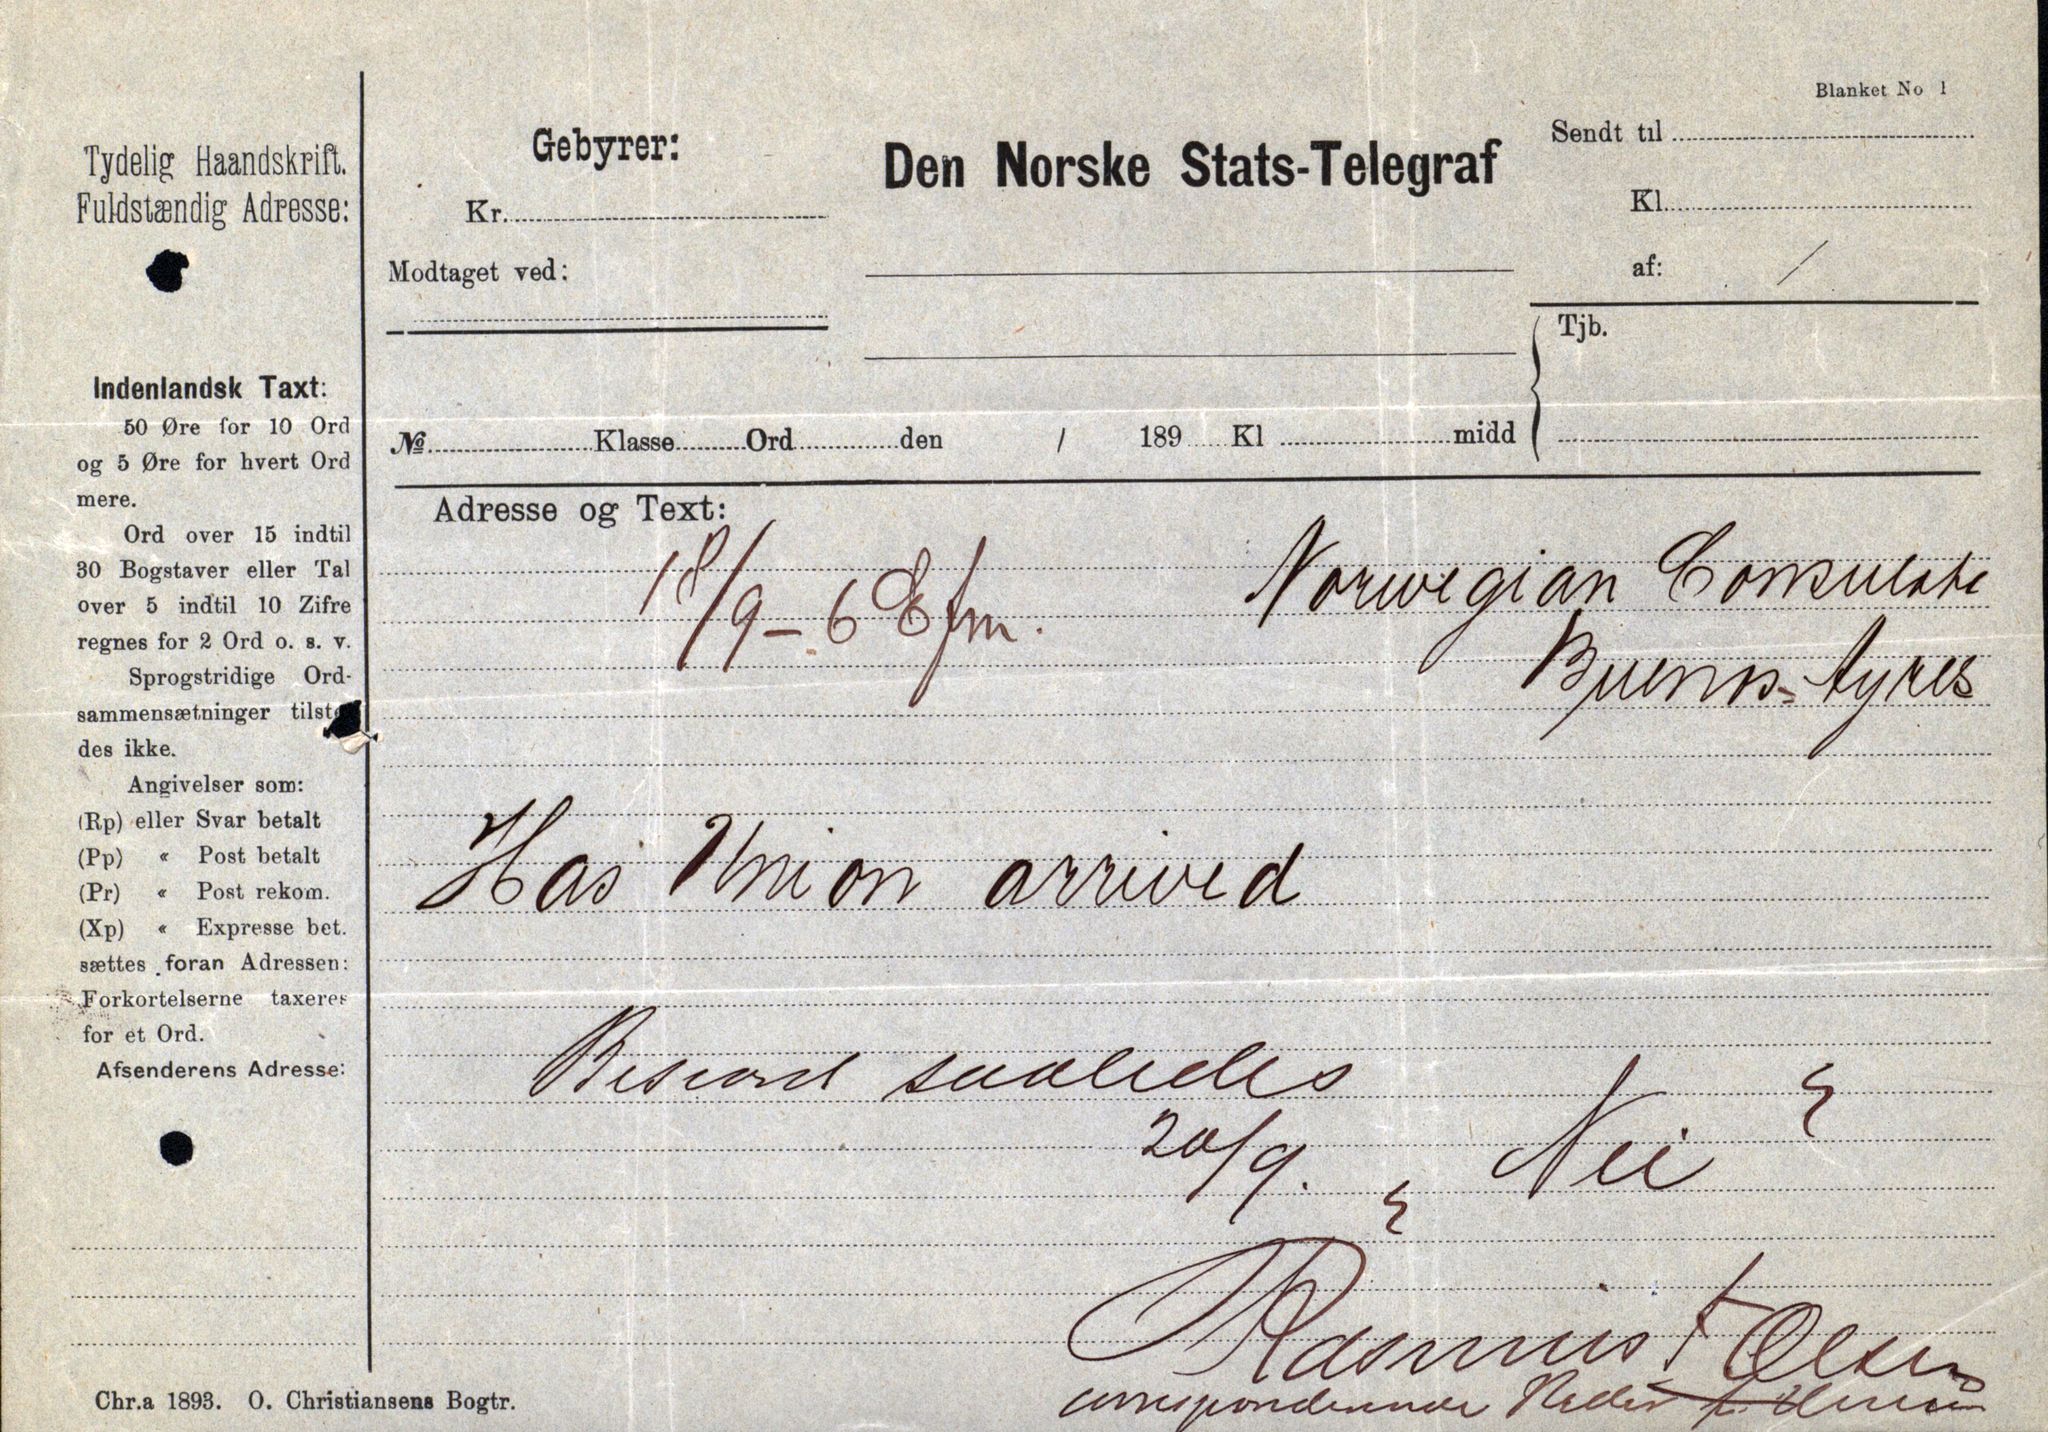 Blanket No 1
Tydelig Haandskrift.
Fuldstændig Adresse:
Indenlandsk Taxt:
50 Øre for 10 Ord
og 5 Øre for hvert Ord
mere.
Ord over 15 indtil
30 Bogstaver eller Tal
over 5 indtil 10 Zifre
regnes for 2 Ord o. s. v.
Sprogstridige Ord-
sammensætninger tilste
des ikke.
Angivelser som:
(Rp) eller Svar betalt
(Pp) « Post betalt
(Pr) « Post rekom.
(Xp) « Expresse bet.
sættes foran Adressen:
Forkortelserne taxeres
for et Ord.
Afsenderens Adresse:
Chr.a 1893. O. Christiansens Bogtr.
Gebyrer:
Kr.
Modtaget ved:
Den Norske Stats-Telegraf
Sendt til
Kl.
af: /
Tjb.
№ Klasse Ord den / 189 Kl midd
Adresse og Text:
18/9 - 6 Efm.
Norwegian Consulate
Buenos-Ayres
Has Union arrived
Besvaret saaledes
20/9. " Nei "
Rasmus F Olsen
correspenderende Reder f. Union